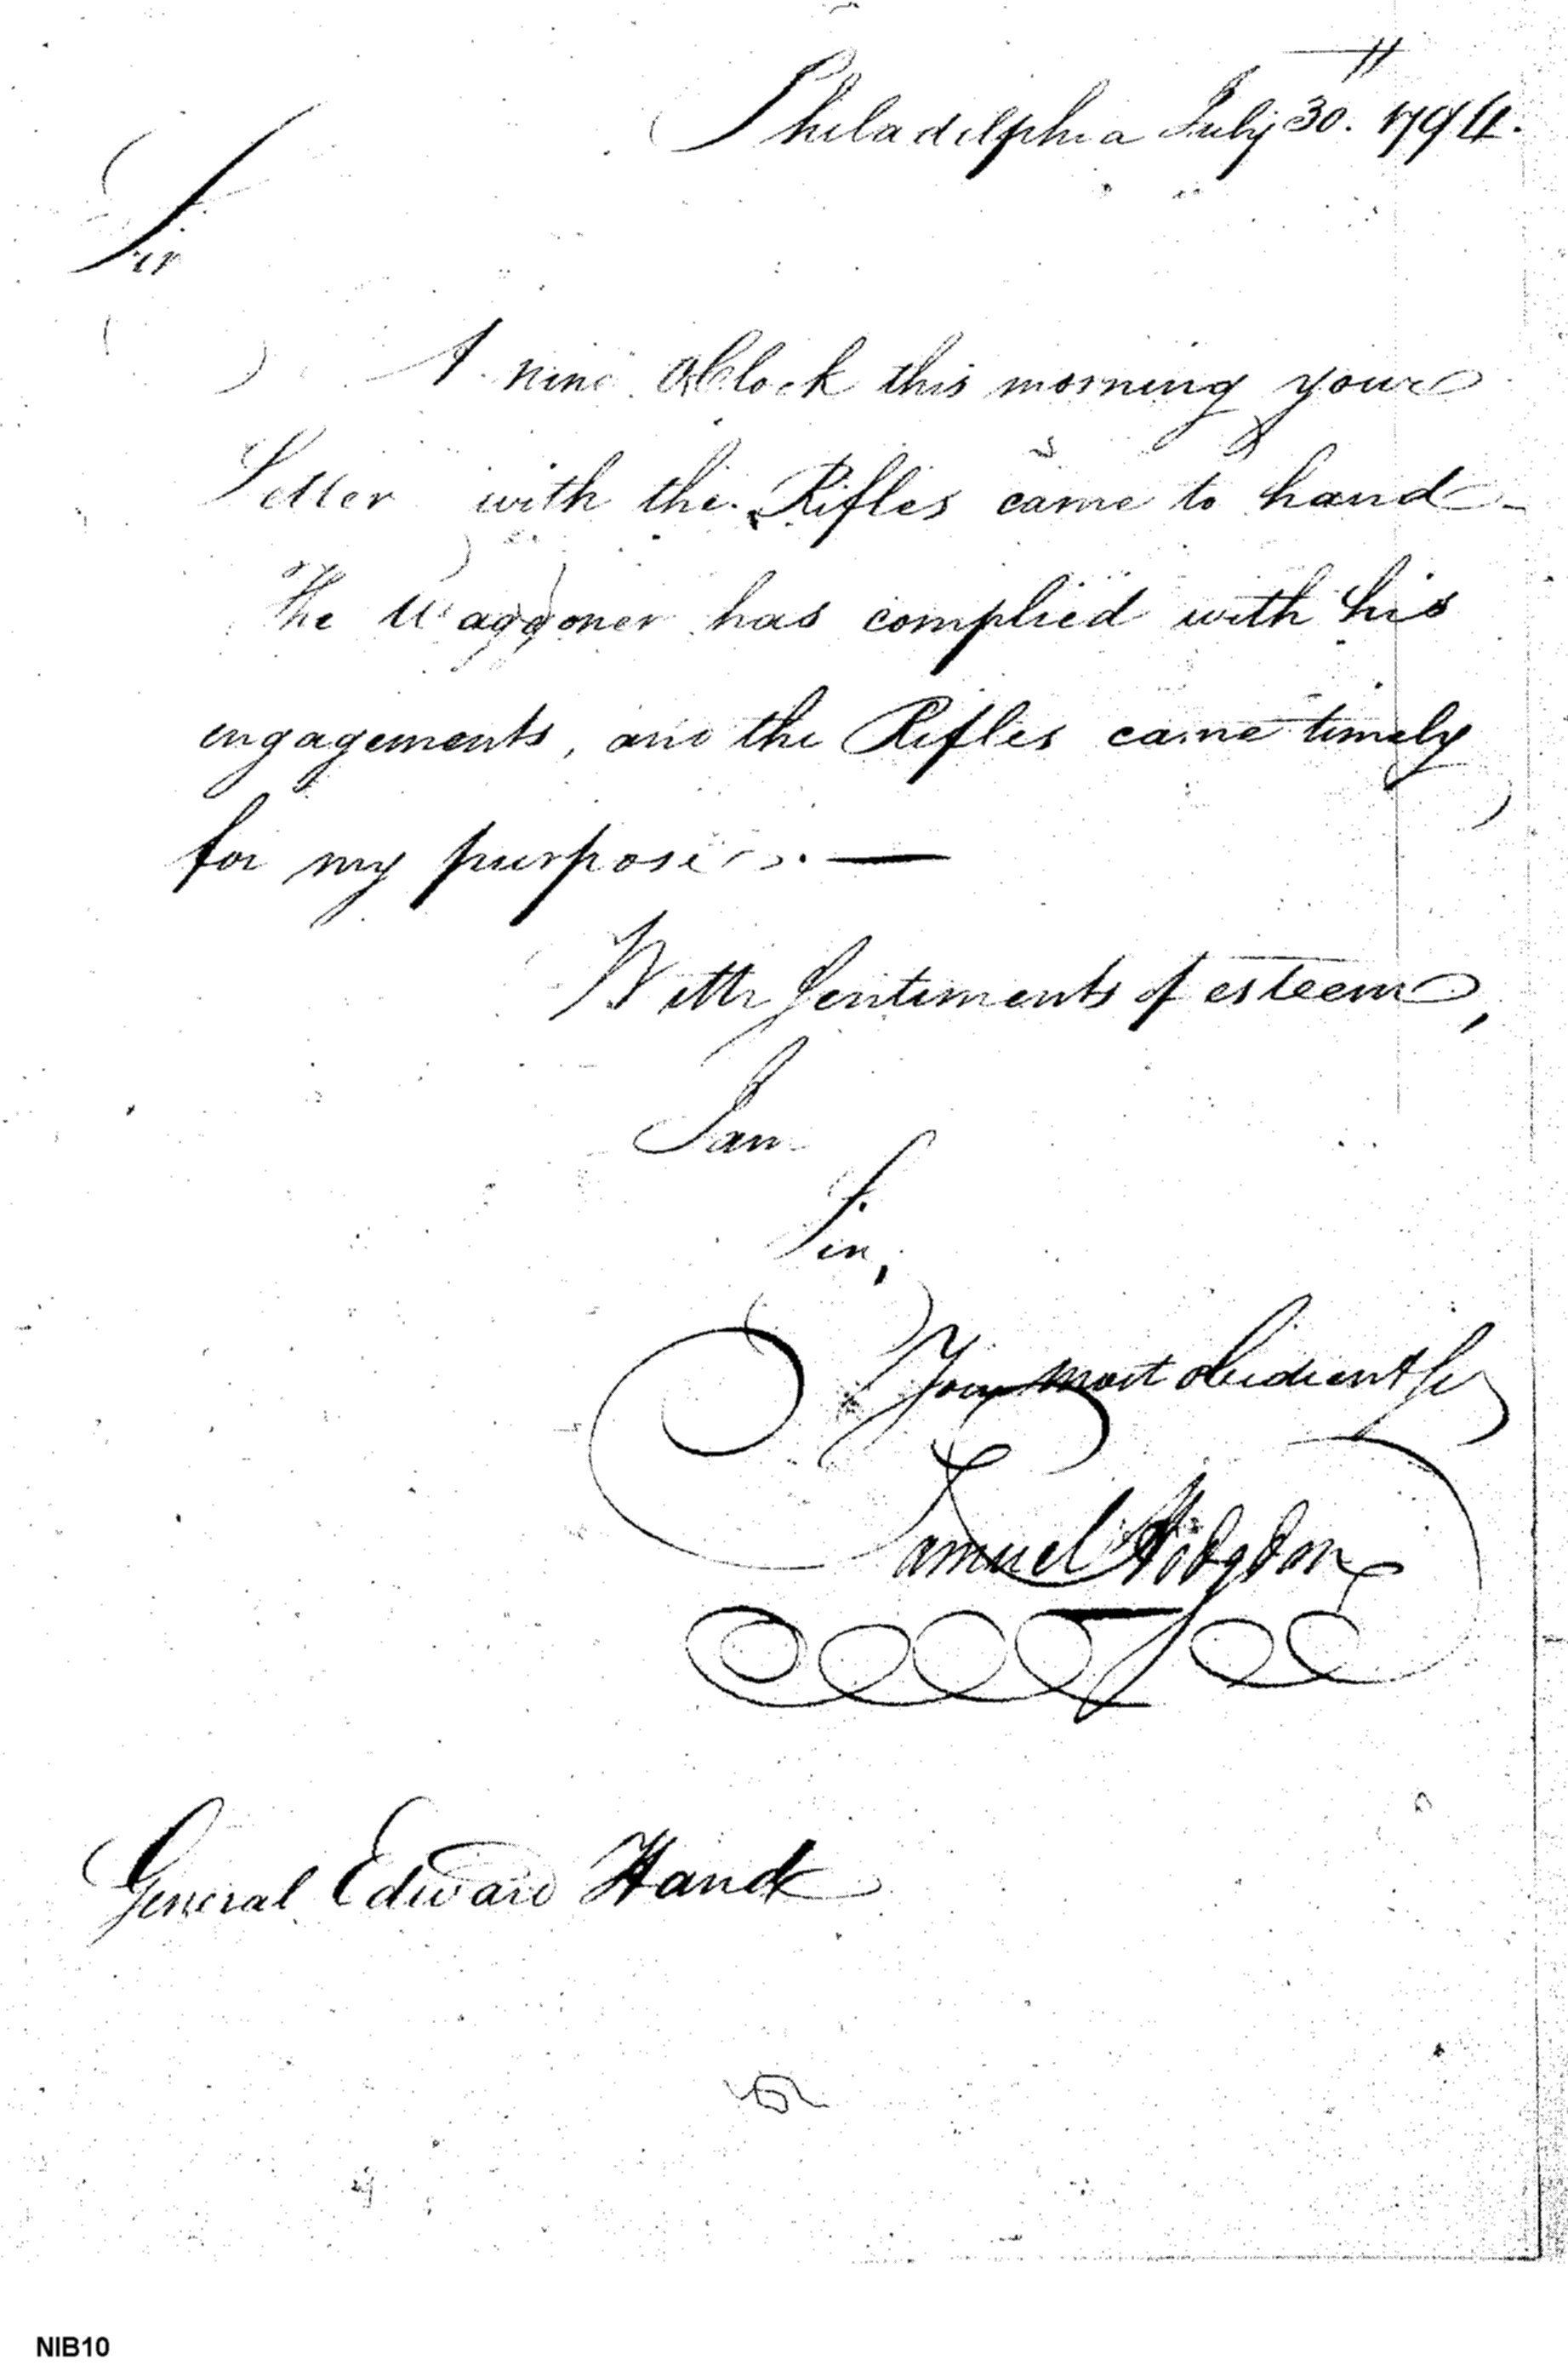 Philadelphia July 30. 1794.
Sir
At nine OClock this morning your
Letter with the Rifles came to hand -
The Waggoner has complied with his
engagements, and the Rifles came timely
for my purposes. —
With Sentiments of esteem,
I am
Sir,
Your most obedient Ser
Samuel Hodgdon
General Edward Hand
NIB10